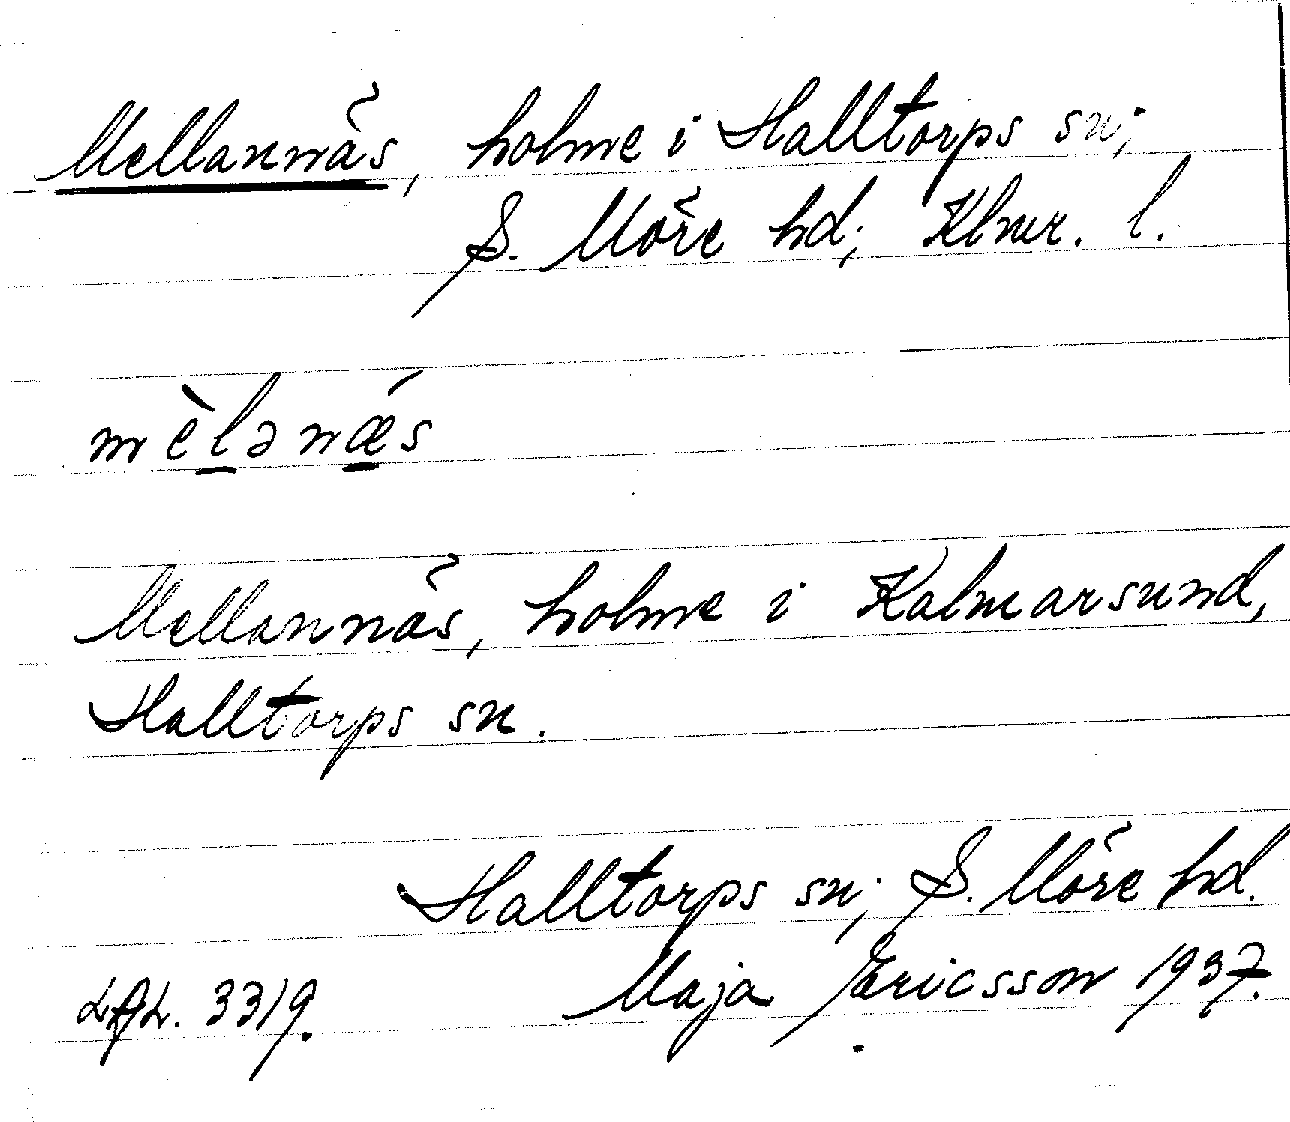 Mellannäs, holme i Halltorps sn;
S. Möre hd; Klmr. l.
mèlənǽs
Mellannäs, holme i Kalmarsund,
Halltorps sn.
Halltorps sn; S. Möre hd.
LAL. 3319. Maja Ericsson 1937.